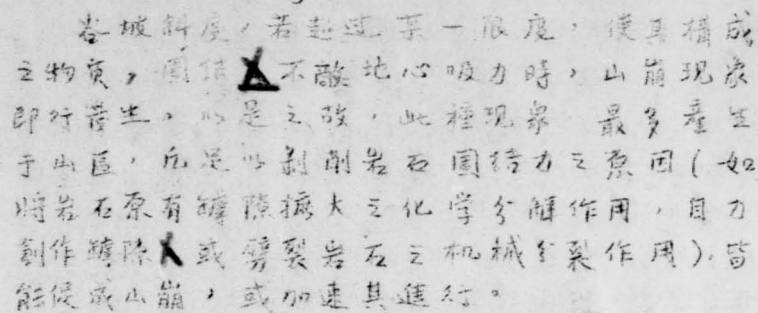 谷坡斜度，若超过某一限度，使其構成
之物质，團结力不敵地心吸力時，山崩現象
即行發生，以是之故，此種現象，最多產生
于山區，凡足以剥削岩石團结力之原因（如
將岩石原有罅隙擴大之化学分解作用，自力
創作罅隙或劈裂岩石之机械分裂作用），皆
能促成山崩，或加速其進行。